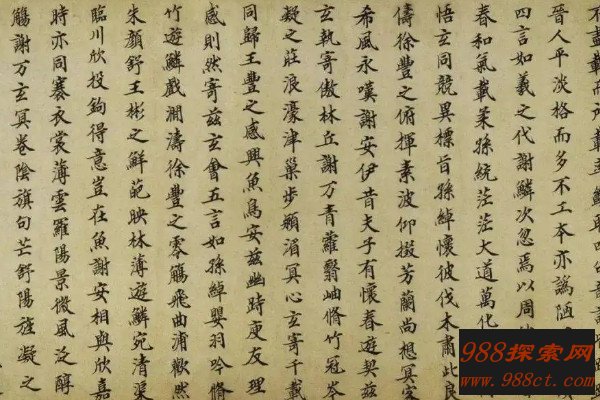 不盡載而所載盡鮮取
晉人平淡格而多不工夲亦謫陋
四言如羲之代謝鱗次忽焉以周
春和氣載柔孫統茫茫大道萬化
悟玄同競異標旨孫綽懷彼伐木肅此良
儔徐豐之俯揮素波仰掇芳蘭尚想冥客
希風永嘆謝安伊昔夫子有懷春遊契茲
玄執寄傲林丘謝万青蘿翳岫脩竹冠岑
凝之莊浪濠津巢步潁湄冥心玄寄千載
同歸王豐之感興魚鳥安茲幽跱庾友理
感則然寄茲玄會五言如孫綽嬰羽吟脩
竹遊鱗戲澗濤徐豐之零觴飛曲浦歡然
朱顏舒王彬之鮮葩映林薄遊鱗宛清渠
臨川欣投鉤得意豈在魚謝安相與欣嘉
時亦同褰衣裳薄雲羅陽景微風泛醇
觴謝万玄冥卷陰旗句芒舒陽旌凝之
988探索网
www.988ct.com